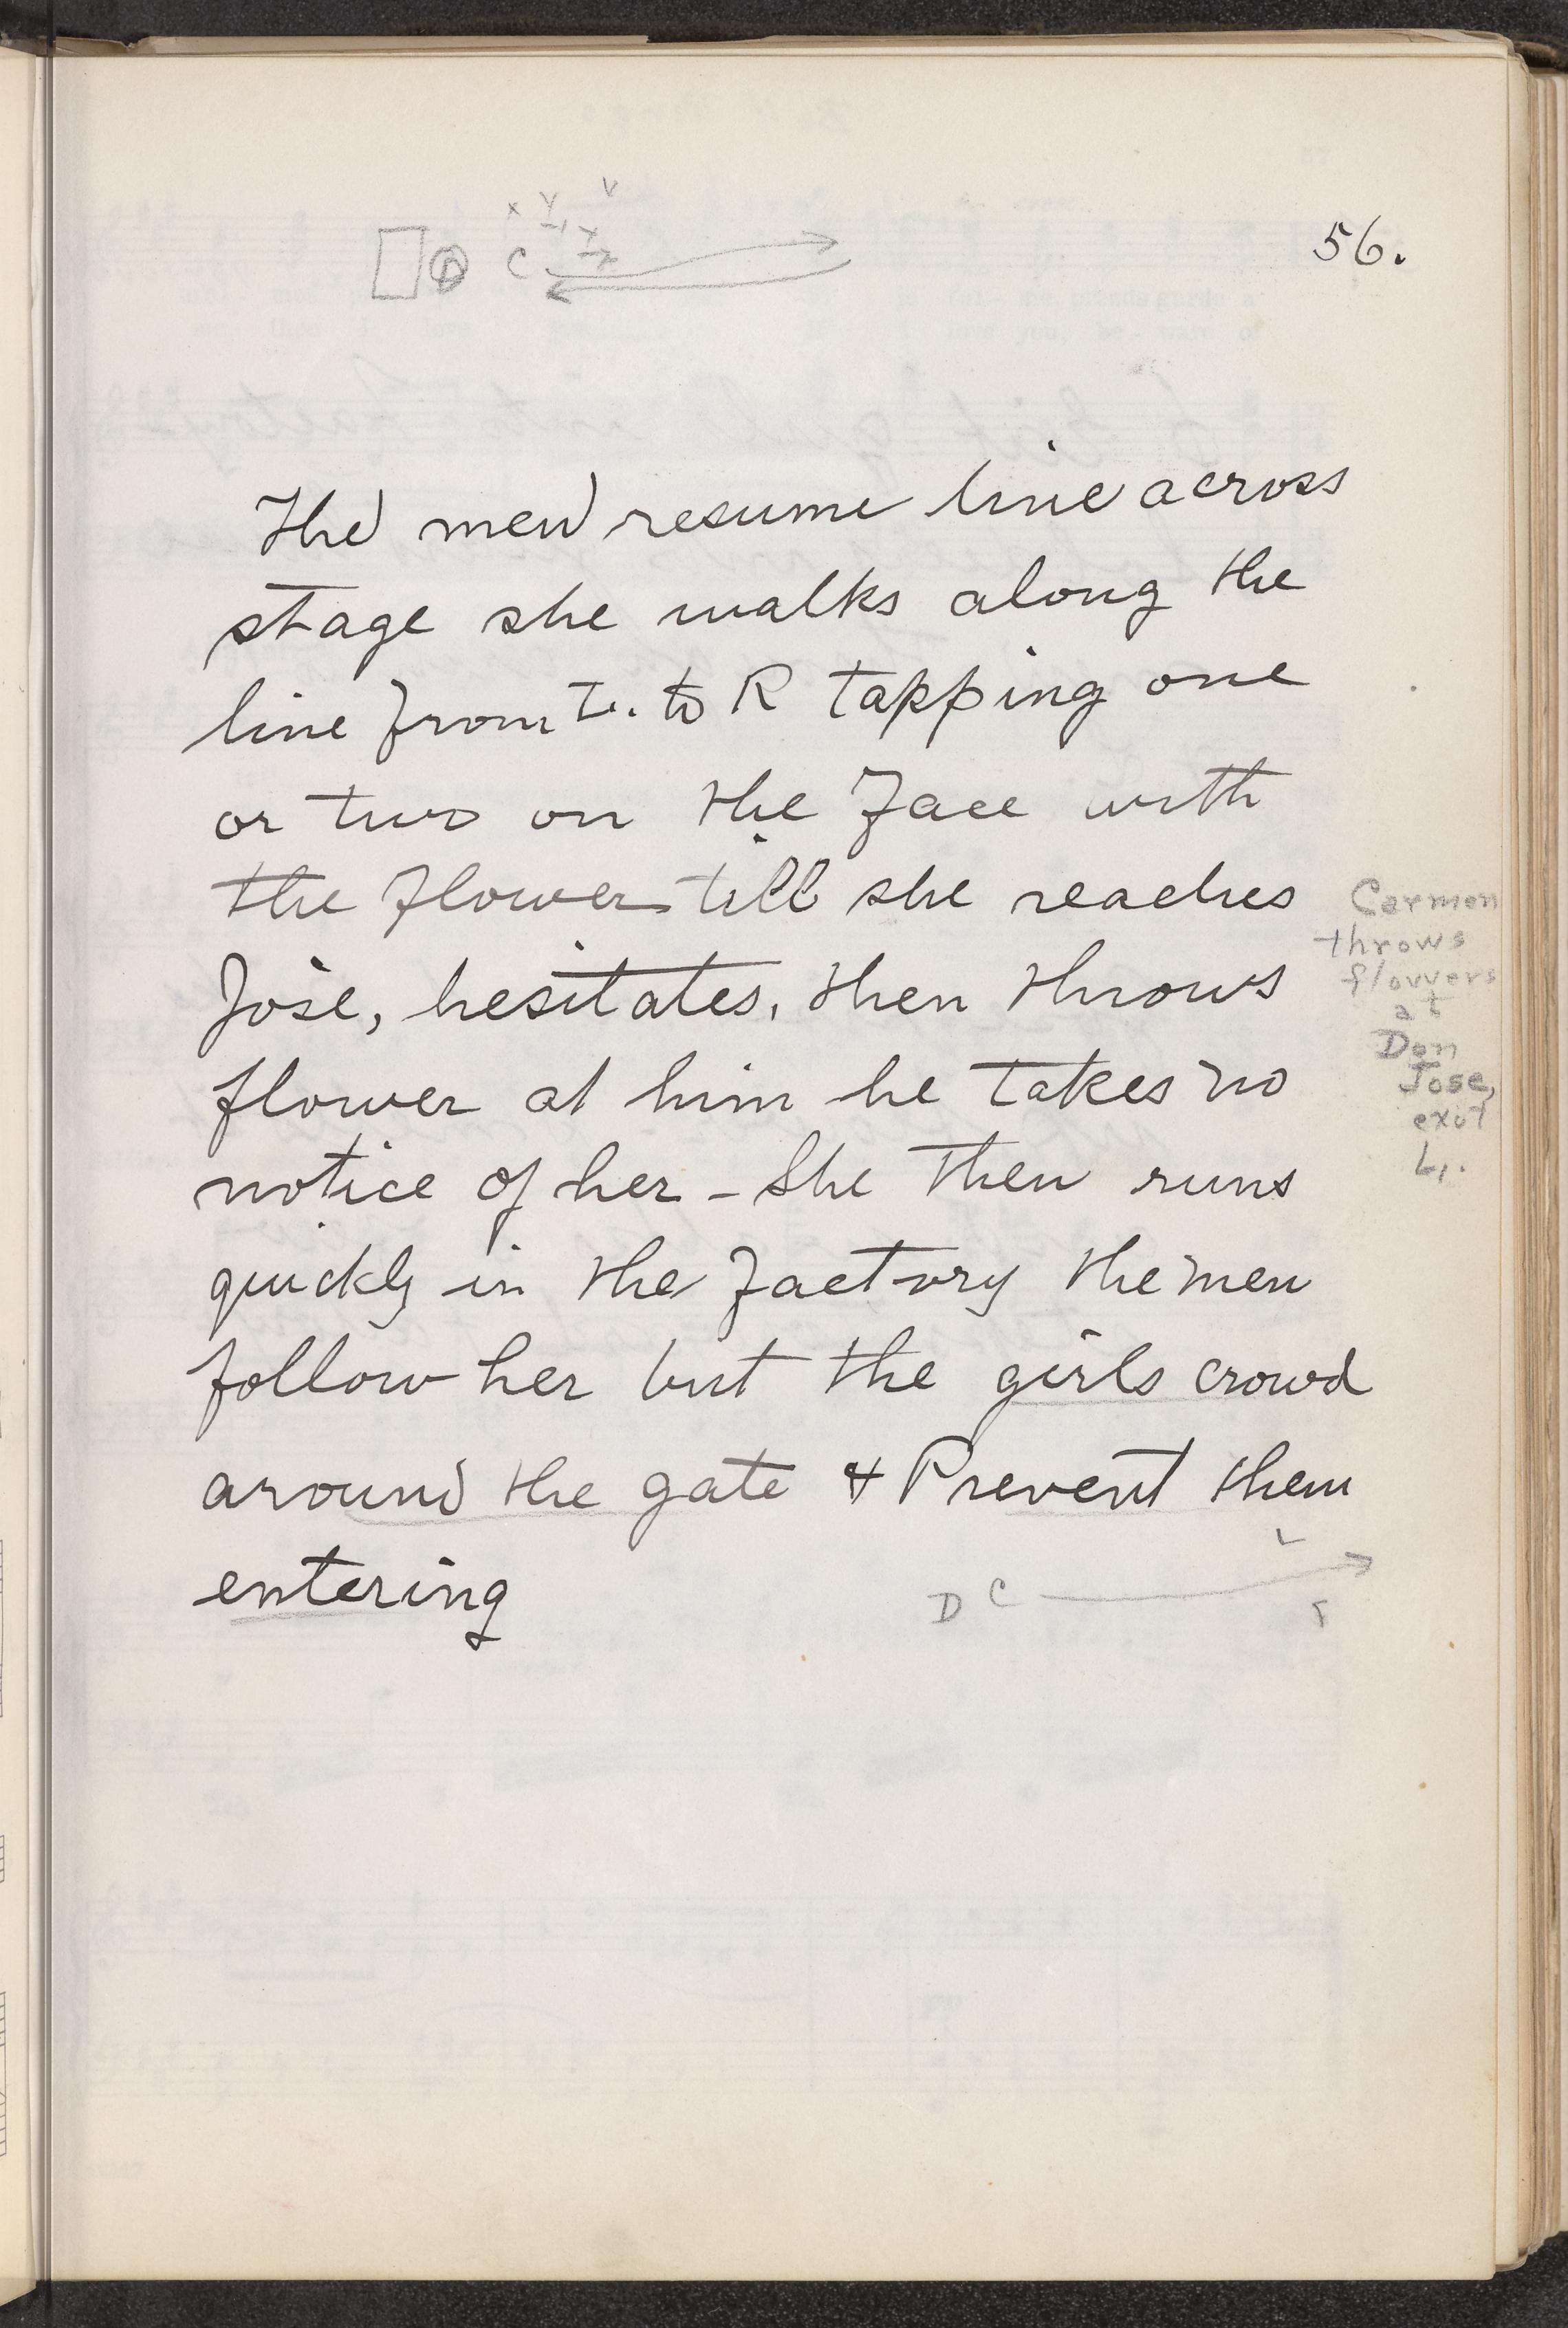 56.
C
The men resume line across
stage she walks along the
line from L. to R tapping one
or two on the face with
the flower till she reaches
Jose, hesitates, then throws
flower at him he takes no
notice of her - She then runs
quickly in the factory the men
follow her but the girls crowd
around the gate & Prevent them
entering
D C
Carmen
throws
flowers
at
Don
Jose,
exit
L.